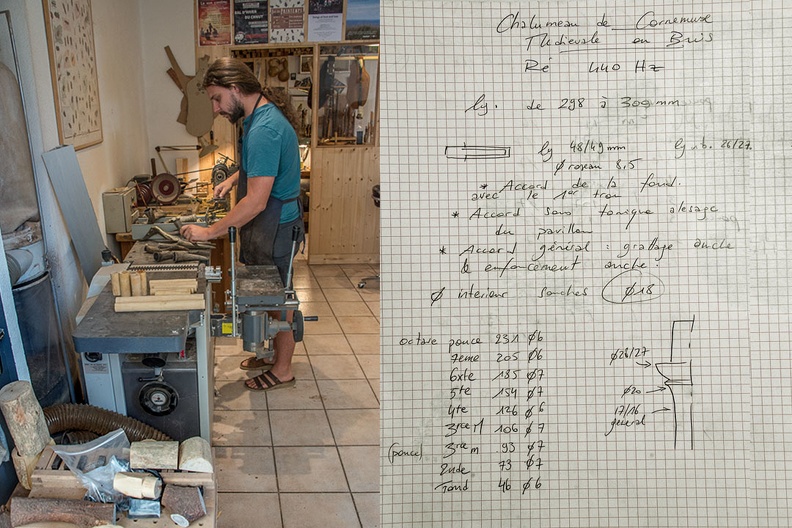 Chalumeau de Cornemuse
Médiévale en Buis
Ré 440 Hz
lg. de 298 à 300 mm
lg 48/49 mm lg nb. 26/27.
ϕ roseau 8,5
* Accord de la fond.
avec le 1er trou
* Accord sous tonique alesage
du pavillon
* Accord général : grattage anche
& enfoncement anche.
ϕ interieur souches ϕ18
octave pouce 231 ϕ6
7eme 205 ϕ6
6xte 185 ϕ7
5te 154 ϕ7
4te 126 ϕ6
3rce M 106 ϕ7
(pouce) 3rce m 93 ϕ7
2nde 73 ϕ7
Fond 46 ϕ6
ϕ26/27
ϕ20
17/16
général